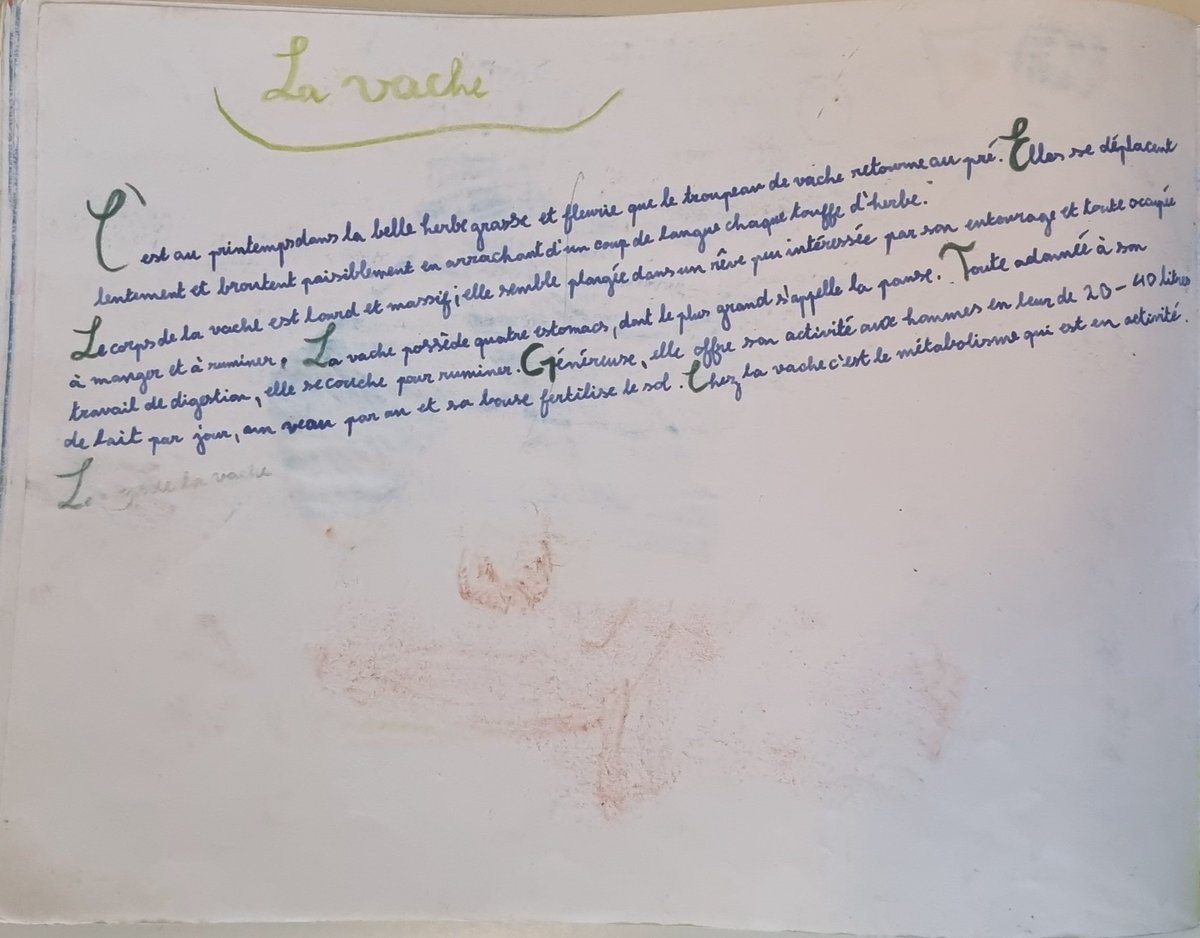 La vache
C'est au printemps dans la belle herbe grasse et fleurie que le troupeau de vache retourne au pré. Elles se déplacent
lentement et broutent paisiblement en arrachant d'un coup de langue chaque touffe d'herbe.
Le corps de la vache est lourd et massif; elle semble plongée dans un rêve peu intéressée par son entourage et toute occupée
à manger et à ruminer. La vache possède quatre estomacs, dont le plus grand s'appelle la panse. Toute adonnée à son
travail de digestion, elle se couche pour ruminer. Généreuse, elle offre son activité aux hommes en leur de 20-40 litres
de lait par jour, un veau par an et sa bouse fertilise le sol. Chez la vache c'est le métabolisme qui est en activité.
Le corps de la vache